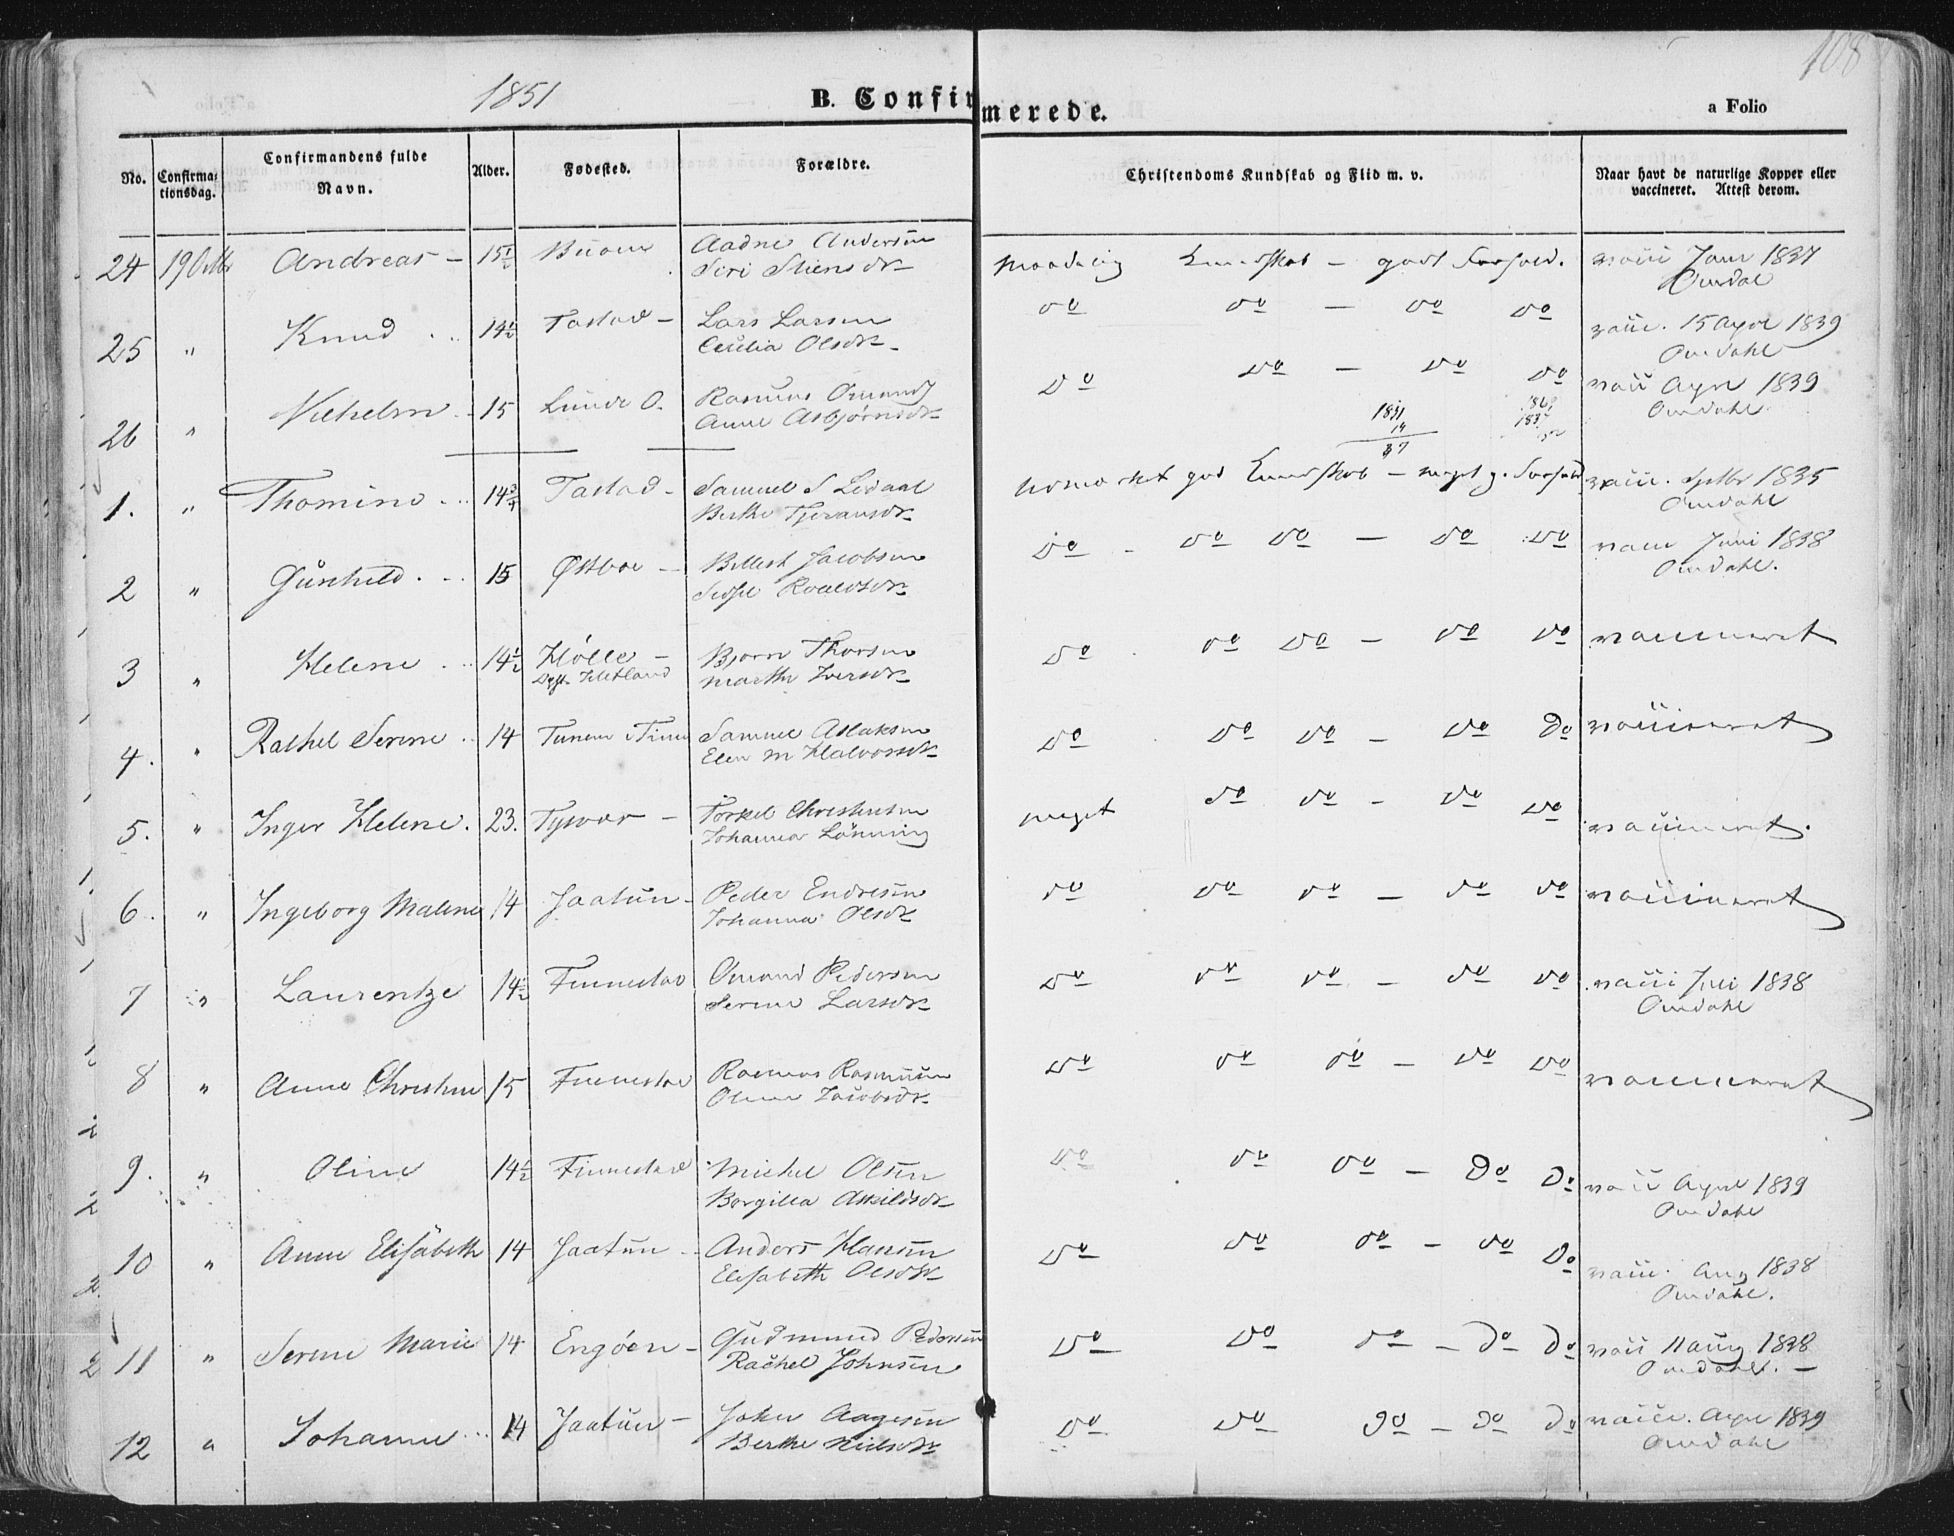 108
1851
B. Confirmerede.
a Folio
No. Confirmationsdag. Confirmandens fulde Navn. Alder. Fødested. Forældre. Christendoms Kundskab og Flid m. v. Naar havt de naturlige Kopper eller vaccineret. Attest derom.
24 19 Octbr Andreas - 15½ Aadne Andersen Kundskab - godt Forhold. 1837
Siri Omdal
25 " Knud 14½ Tastad - Lars Larsen do do - do do vacc. 15 Apr 1839
Cecilia Olsdr Omdahl
26 " Vilhelm - 15 Lunde O. Rasmus do do - do do vacc Apr 1839
Anne Asbjørnsdr Omdahl.
1851
14
37
1. " Thomine 14¾ Tastad - Samuel S god Kundskab - meget g. Forhold vacc. Septbr 1835
Berthe Omdahl
2 " Gunhild. 15 Østboe - Jacobsen do - do do - do do vacc Juni 1838
Roaldsdr Omdahl.
3 " Helene 14½ Hölle - Bjørn Thorsen do do do - do do vaccineret
Hetland Marthe Iversdr
4. " Rachel Serine 14 Samuel Aslaksen do do do - do do vaccineret
Elen M Halvorsdr
5. " Inger Helene. 23. Tysvær - Torkel Christensen meget do do - do do vaccineret.
Johanna Lönning
6. " Ingeborg Malene 14 Jaatun - Peder Endresen do do do - do do vaccineret
Johanna Olsdr
7 " Laurentze 14½ Finnestad Omund Pedersen do do do - do do vacc Juli 1838
Serine Larsdr Omdahl
8 " Anne Christine 15 Finnestad Rasmus Rasmussen do do do - do do vaccineret
Oline Jacobsdr
9. " Oline 14½ Finnestad Michel Olsen do do do - do do vacc April 1839
Borgilla Askildsdr Omdahl
10 " Anne Elisabeth 14 Jaatun Anders Hansen do do do - do do vacc. Aug 1838
Elisabeth Olsdr Omdahl.
11 " Serine Marie 14 Engöen - Gudmund Pedersen do do do - do do vacc 11 Aug 1838
Rachel Johnsen Omdahl. -
12 " Johanne 14 Jaatun - John Aagesen do do do - do do vacc. Apr 1839
Berthe Nielsdr Omdahl